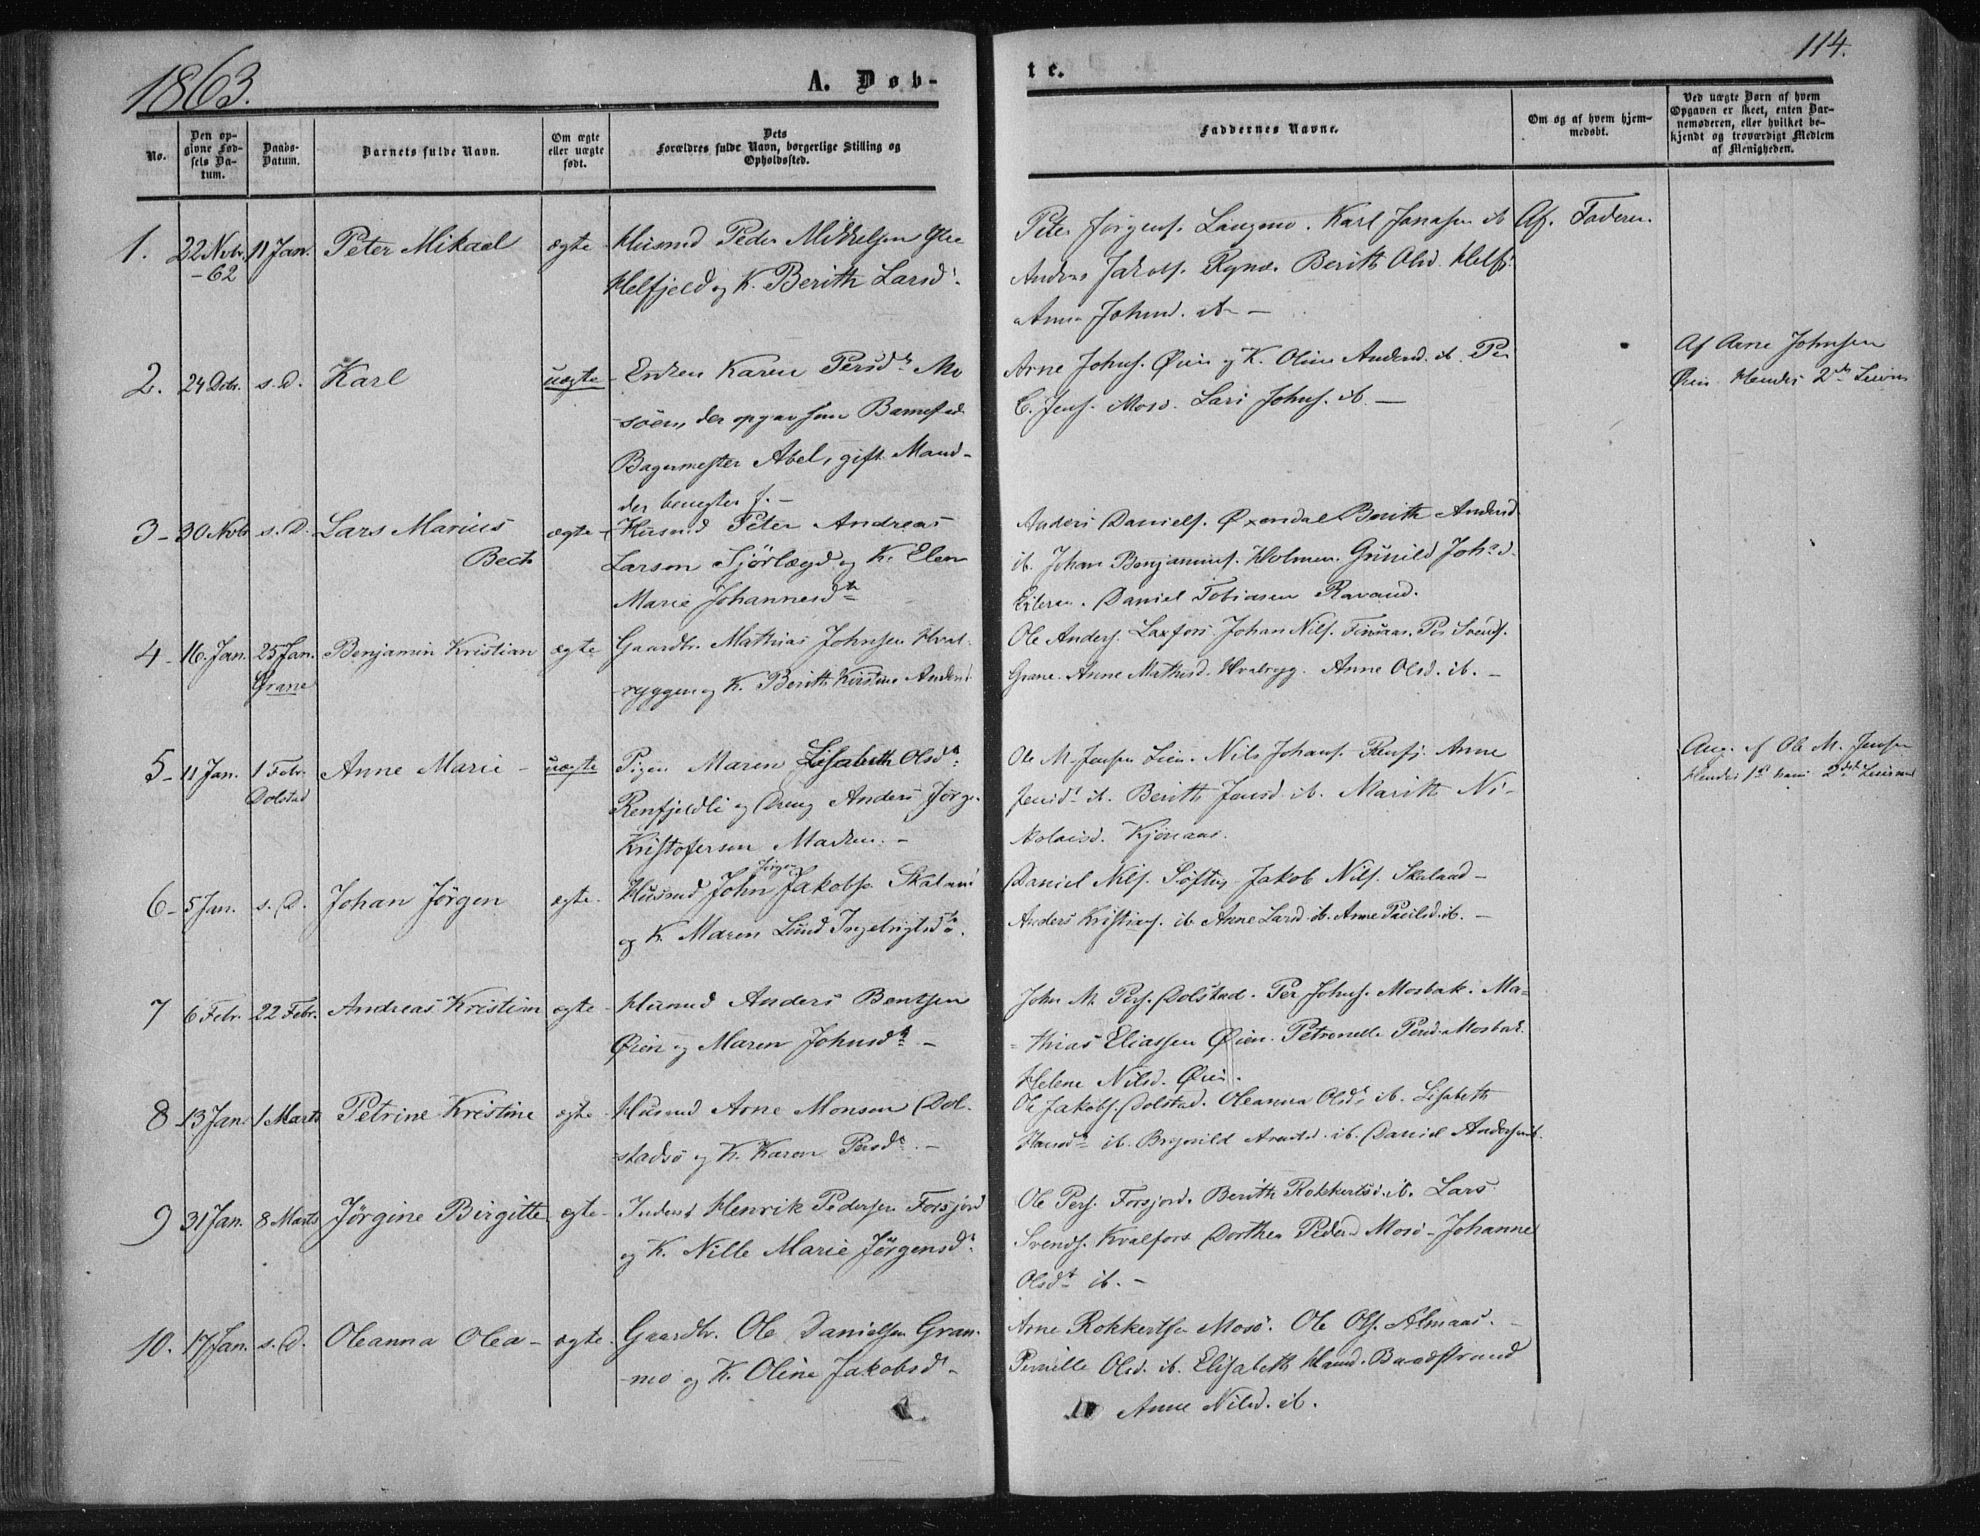 1863.
A. Døb-
te.
114.
No.
Den opgivne Fødsels Datum.
Daabs-Datum.
Barnets fulde Navn.
Om ægte eller uægte født.
Dets Forældres fulde Navn, borgerlige Stilling og Opholdssted.
Faddernes Navne.
Om og af hvem hjemmedøbt.
Ved uægte Børn af hvem Opgaven er skeet, enten Barnemoderen, eller hvilket bekjendt og troværdigt Medlem af Menigheden.
1. 22 Novbr. 11 Jan. Peter Mikael ægte Husmd Peder Mikkelsen
-62 Helfjeld og K. Berith Larsd.
Peter Jørgens. Langmo. Karl Jonasen ib Af Faderen.
Anders Jakobs. Rynes. Berith Olsd. Helfj.
Anna Johnsd. ib —
2. 24 Dcbr. s. D. Karl uægte Enken Karen Persdtr Mo
søen, der opgav som Barnefad.
Bagermester Abel, gift Mand -
der benegter f. -
Arne Johns. Øien og K. Oline Andersd. ib. Per
C. Jens. Mosø. Lars Johns. ib. —
Af Arne Johnsen
Øien. Hendes 2det Leierm
3 - 30 Novbr s. D. Lars Marius ægte - Husmd Peter Andreas
Bech Larsen Sjørlægd og K. Elen
Marie Johannesdtr
Anders Daniels. Øxendal Berith Andersd
ib. Johan Benjamins. Holmen. Gunild Joh.d.
Eiteraa. Daniel Tobiasen Ravand.
4 - 16. Jan. 25 Jan. Benjamin Kristian ægte Gaardbr. Mathias Johnsen Hval-
Grane ryggen og K. Berith Kirstine Andersd
Ole Anders. Laxfors. Johan Nils. Finsaas. Per Svends.
Grane. Anne Mathisd. Hvalrygg. Anne Olsd. ib. -
5 - 11 Jan. 1 Febr. Anne Marie - uægte Pigen Maren Lisabeth Olsdtr
Dolstad Renfjeldli og Dreng Anders Jørg.
Kristofersen Madken. -
Ole M. Jensen Lien. Nils Johans. Renfj. Anne
Jensd. ib. Berith Jensd. ib. Marith Ni-
kolaisd. Kjønaas.
Aug. af Ole M. Jensen
Hendes 1ste hans 2det Leierm
6 - 5 Jan. s. D. Johan Jörgen ægte. Husmd John Jørgen Jakobs. Skaland
og K. Maren Lund Ingebrigtsd.
Daniel Nils. Søfting Jakob Nils. Skaland -
Anders Kristians. ib Anne Larsd. ib. Anne Paulsd. ib. -
7 6 Febr. 22 Febr. Andreas Kristian ægte - Husmd Anders Bentsen
Øien og Maren Johnsdtr -
John M. Pers. Dolstad. Per Johns. Mosbak. Ma-
thias Eliassen Øien. Petronelle Persd. Mosbak
Helene Nilsd. Øien.
8 13 Jan. 1 Marts Petrine Kristine ægte. Husmd Arne Monsen Dol-
stadsø og K. Karen Persdtr -
Ole Jakobs. Dolstad. Oleanna Olsdr ib. Lisabeth
Hansdtr ib. Brynild Arntsd. ib. Daniel Andersen ib.
9 31 Jan. 8 Marts Jörgine Birgitte ægte - Inderst Henrik Pedersen Forsjord
og K. Nille Marie Jørgensdr
Ole Pers. Forsjord. Berith Rokkertsd. ib. Lars
Svends. Kvalfors Dorthea Pedersd Mosø - Johanne
Olsdtr ib. -
10. 17 Jan. s. D. Oleanna Olea - ægte. Gaardbr. Ole Danielsen Gran-
mo og K. Oline Jakobsdr -
Arne Rokkertsen Mosø. Ole Ols. Almaas. -
Pernille Olsd. ib. Elisabeth Hansd. Baadstrand
Anne Nilsd. ib.